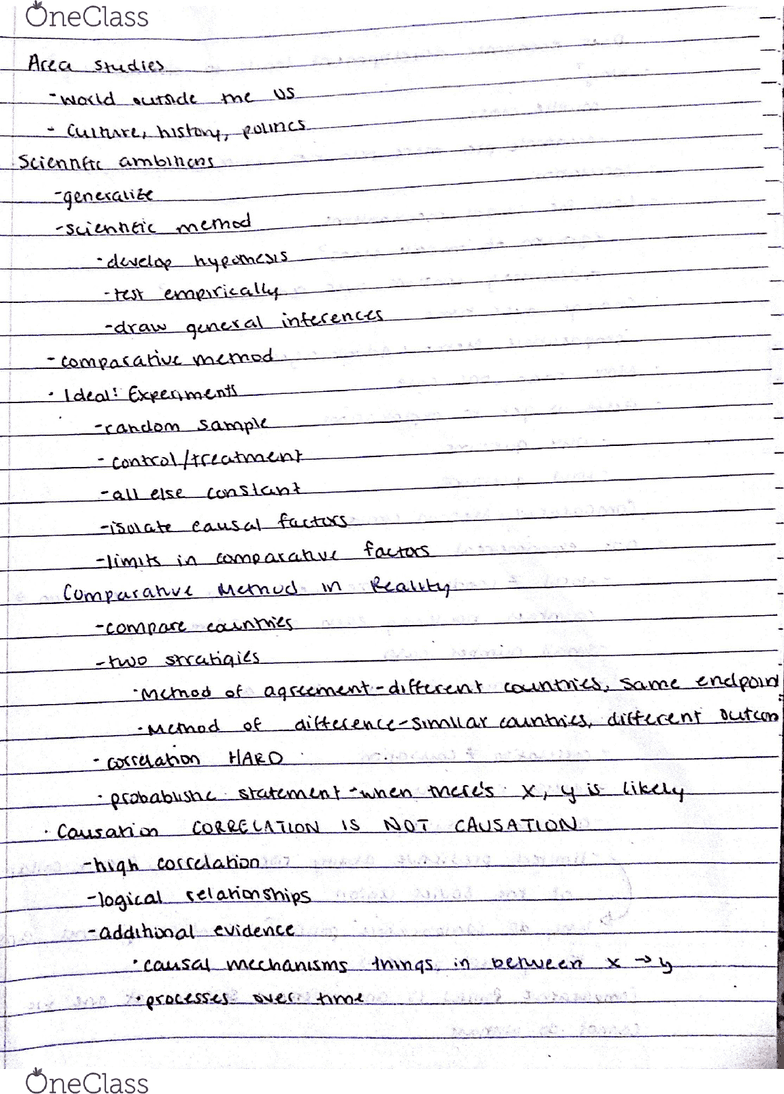 OneClass
Area studies
-world outside the US
- Culture, history, politics
Scientific ambitions
-generalize
-scientific method
-develop hypothesis
-test empirically
-draw general inferences
-comparative method
· Ideal: Experiments
-random sample
-control/treatment
-all else constant
-isolate causal factors
-limits in comparative factors
Comparative Method in Reality
-compare countries
-two stratigies
·Method of agreement-different countries, same endpoint
·Method of difference-similar countries, different outcom
-correlation HARD
·probablistic statement-when there's x, y is likely
· Causation CORRELATION IS NOT CAUSATION
-high correlation
-logical relationships
-additional evidence
·causal mechanisms things in between x →y
·processes over time
OneClass